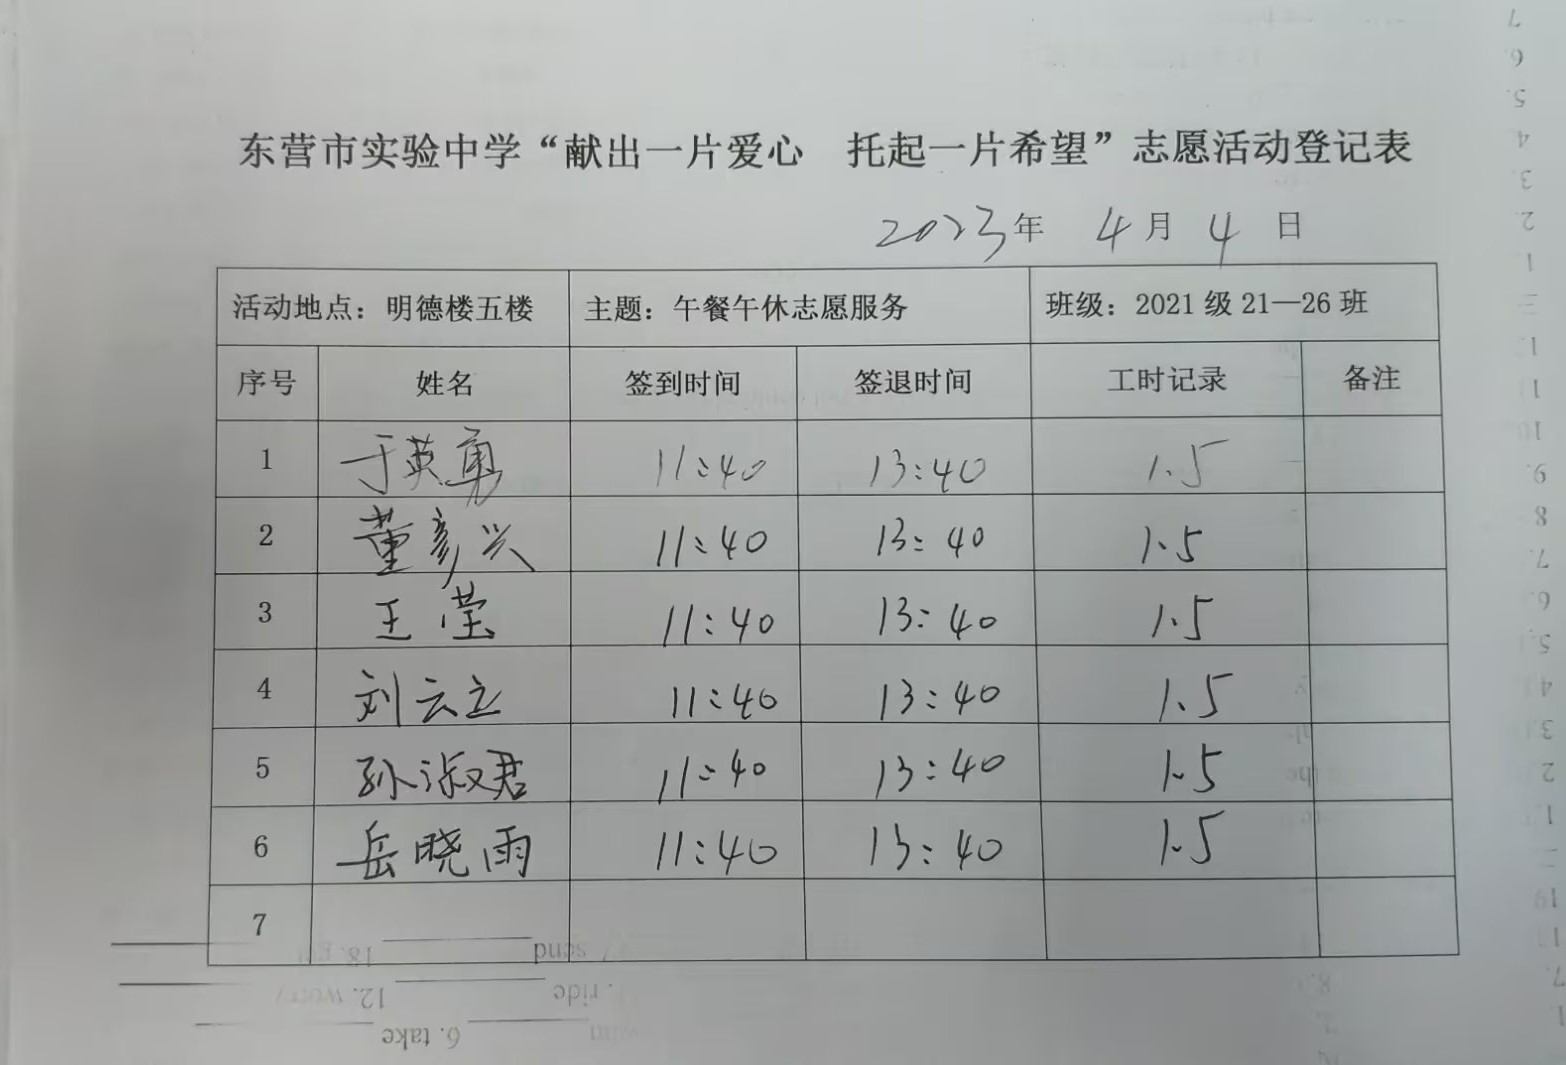 东营市实验中学“献出一片爱心 托起一片希望”志愿活动登记表
2023年 4月 4日
活动地点：明德楼五楼 主题：午餐午休志愿服务 班级：2021级21—26班
序号 姓名 签到时间 签退时间 工时记录 备注
1 于英勇 11:40 13:40 1.5
2 董彦兴 11:40 13:40 1.5
3 王莹 11:40 13:40 1.5
4 刘云立 11:40 13:40 1.5
5 孙淑君 11:40 13:40 1.5
6 岳晓雨 11:40 13:40 1.5
7